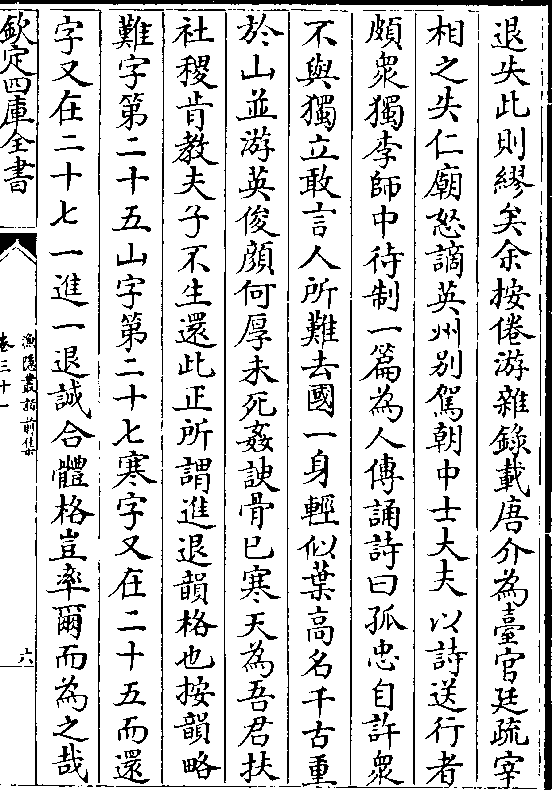 退失此則繆矣余按倦游雜錄載唐介為臺官廷疏宰
相之失仁廟怒謫英州别駕朝中士大夫以詩送行者
頗衆獨李師中待制一篇為人傳誦詩曰孤忠自許衆
不與獨立敢言人所難去國一身輕似葉高名千古重
於山並游英俊顔何厚未死姦諛骨已寒天為吾君扶
社稷肯教夫子不生還此正所謂進退韻格也按韻略
難字第二十五山字第二十七寒字又在二十五而還
字又在二十七一進一退誠合體格豈率爾而為之哉
欽定四庫全書
漁隱叢話前集
卷三十一
六